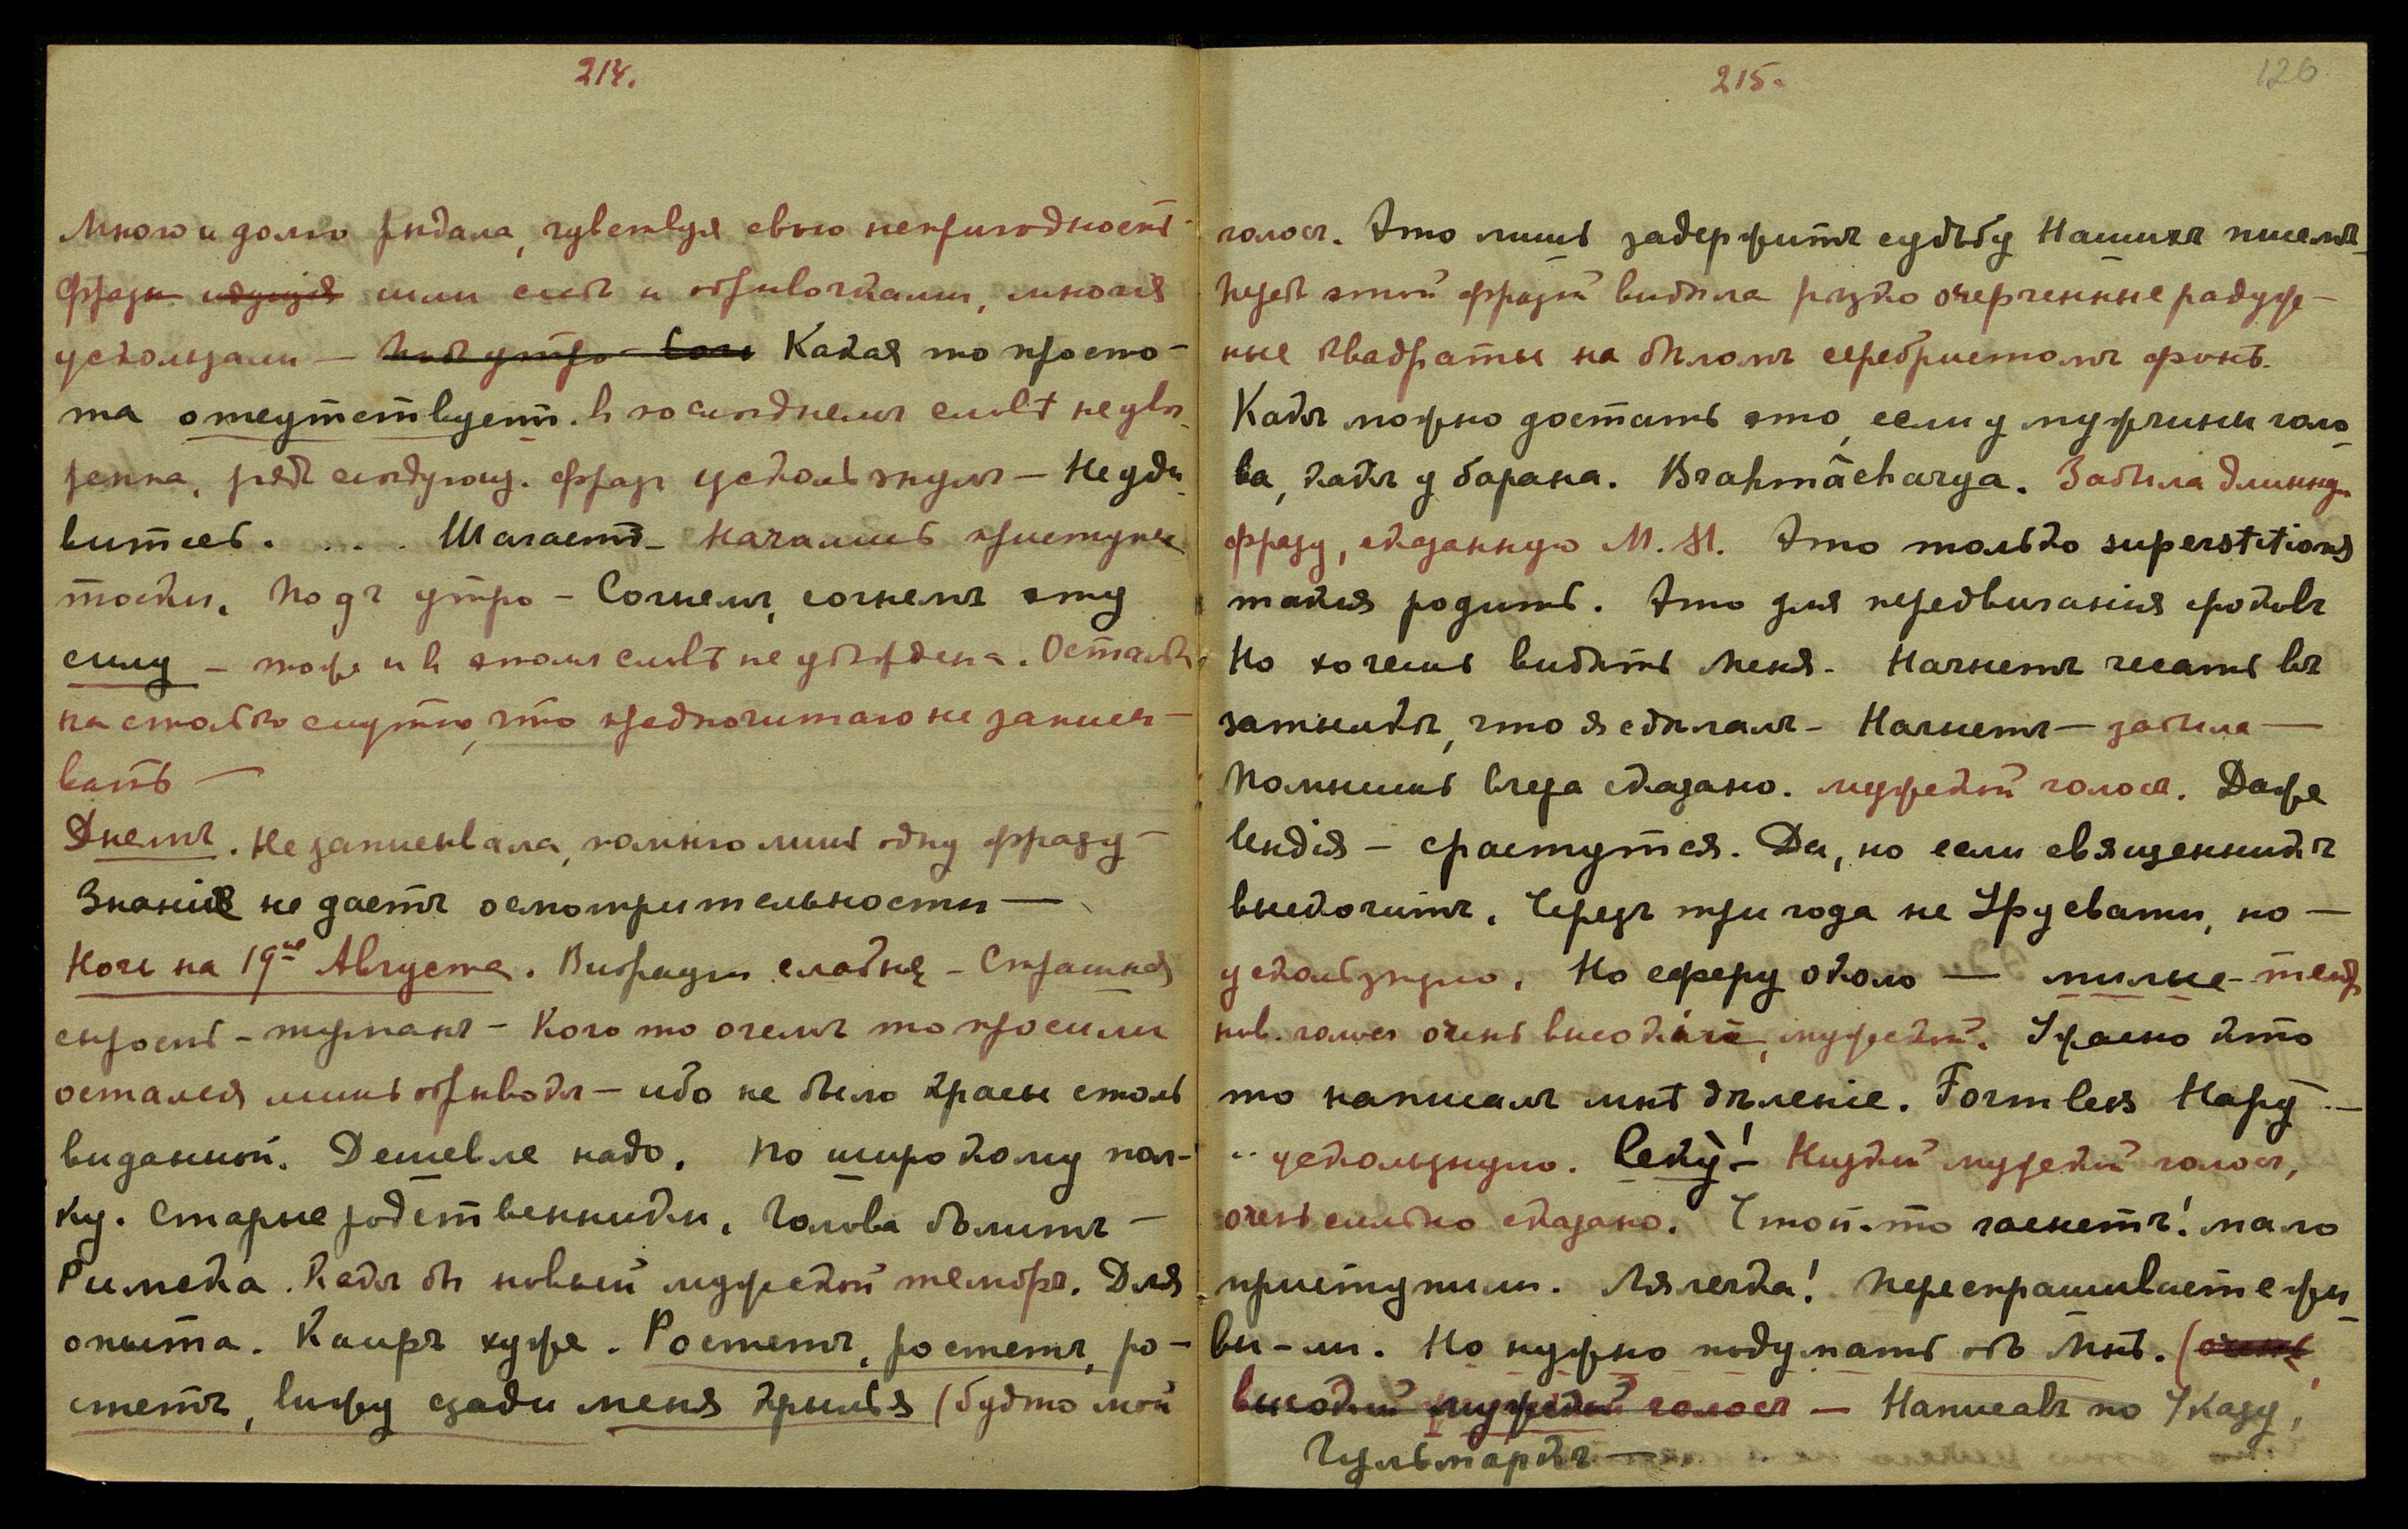 214.
Много и долго рыдала, чувствуя свою непригодность
Фразы идущія шли слабѣ и обрывочками, многія
ускользали — Подъ утро — Какая то просто-
та отсутствует. В последнемъ словѣ не уве-
рена, рядъ следующ. фраз ускользнулъ — Не уди-
витесь. . . . Шагаетъ — Начались приступы
тоски. Подъ утро — Сочнемъ, сочнемъ эту
силу — тоже и в этомъ словѣ не убѣждена. Остальн.
настолько смутно, что предпочитаю не записы-
вать —
Днемъ. Не записывала, помню лишь одну фразу —
Знаніе не даетъ осмотрительности —
Ночь на 19ое Августа. Вибраціи слабые — Страшная
сырость — туманъ — Кого то о чемъ то просили
остался лишь обрывокъ — ибо не было красы столь
виданной. Дешевле надо. По широкому пол-
ку. Старые родственники. Голова болитъ —
Римска. Какъ бы новый мужской тембръ. Для
опыта. Каиръ хуже. Ростетъ, ростетъ, ро-
стетъ, вижу сзади меня крылья (будто мой
215.
126
голосъ. Это лишь задержитъ судьбу Нашихъ писемъ
Передъ этой фразой видѣла рѣзко очерченные радуж-
ные квадраты на бѣломъ серебристомъ фонѣ.
Какъ можно достать это, если у мужчины голо-
ва, какъ у барана. Brahmâcharya. Забыла длинную
фразу, сказанную М. М. Это только superstitions
такія родитъ. Это для передвиганія фоковъ
Но хочешь видѣть Меня. Начнетъ чесать въ
затылкѣ, что я сдѣлалъ — Начнетъ — забыла —
Помнишь вчера сказано. мужской голосъ. Даже
Индія — срастутся. Да, но если священникъ
выскочитъ. Черезъ три года не Урусвати, но —
ускользнуло. Но сферу около — милые — тенор
нов. голос очень высокій, мужской. Ужасно кто
то написалъ мнѣ дѣленіе. Formless Нару —
.. ускользнуло. Секу! — Низкій мужской голосъ,
очень сильно сказано. Чтой-то гаснетъ! мало
приступили. Лялечка! Переспрашиваете жи-
вы-ли. Но нужно подумать объ Мнѣ. (очень
высокій мужской голосъ — Написавъ по Указу,
Гульмаргъ —